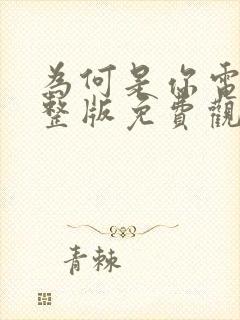 為何是你電
整版免費觀
青棘